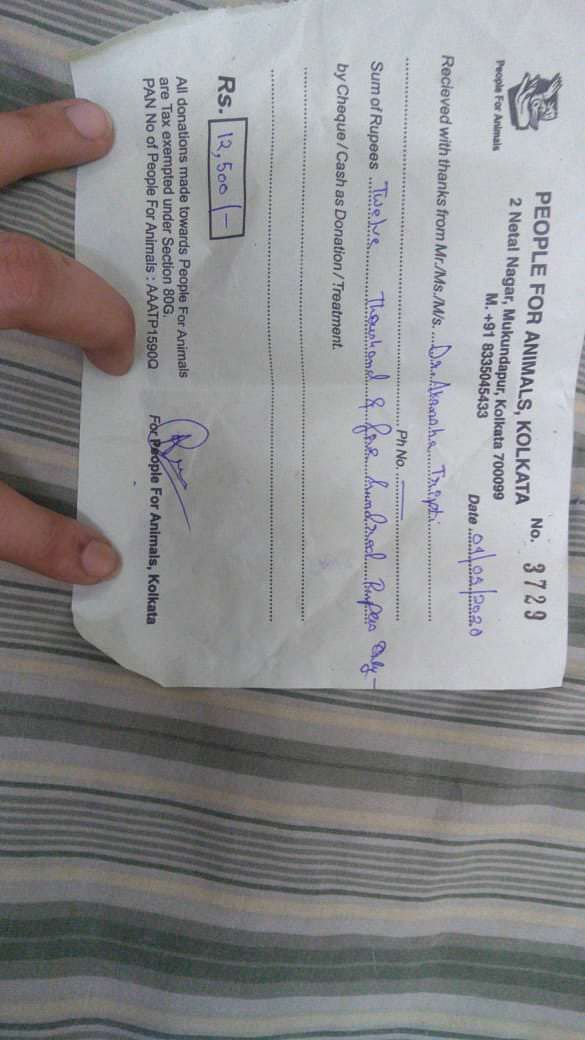 People For Animals
PEOPLE FOR ANIMALS, KOLKATA
2 Netal Nagar, Mukundapur, Kolkata 700099
M. +91 8335045433
No. 3729
Date 01/05/2020
Recieved with thanks from Mr./Ms./M/s. Dr. Akansha Tripti
Ph No.
Sum of Rupees Twelve Thousand & five hundred Rupees Only —
by Cheque / Cash as Donation / Treatment.
Rs. 12,500/-
All donations made towards People For Animals
are Tax exempted under Section 80G.
PAN No of People For Animals : AAATP1590Q
For People For Animals, Kolkata